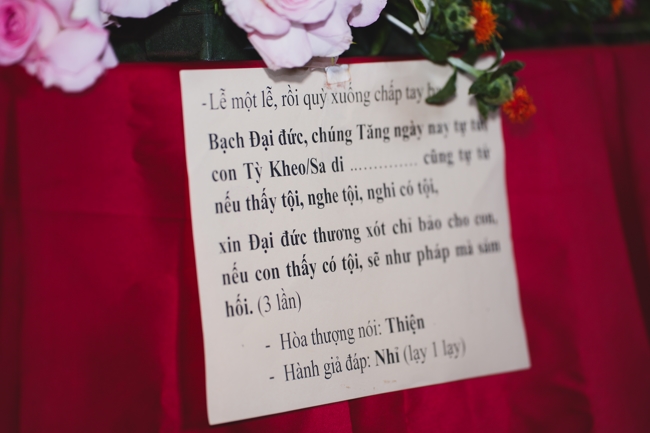 -Lễ một lễ, rồi quỳ xuống chắp tay
Bạch Đại đức, chúng Tăng ngày nay tự tứ,
con Tỳ Kheo/Sa di ............. cũng tự tứ
nếu thấy tội, nghe tội, nghi có tội,
xin Đại đức thương xót chỉ bảo cho con,
nếu con thấy có tội, sẽ như pháp mà sám
hối. (3 lần)
- Hòa thượng nói: Thiện
- Hành giả đáp: Nhĩ (lạy 1 lạy)